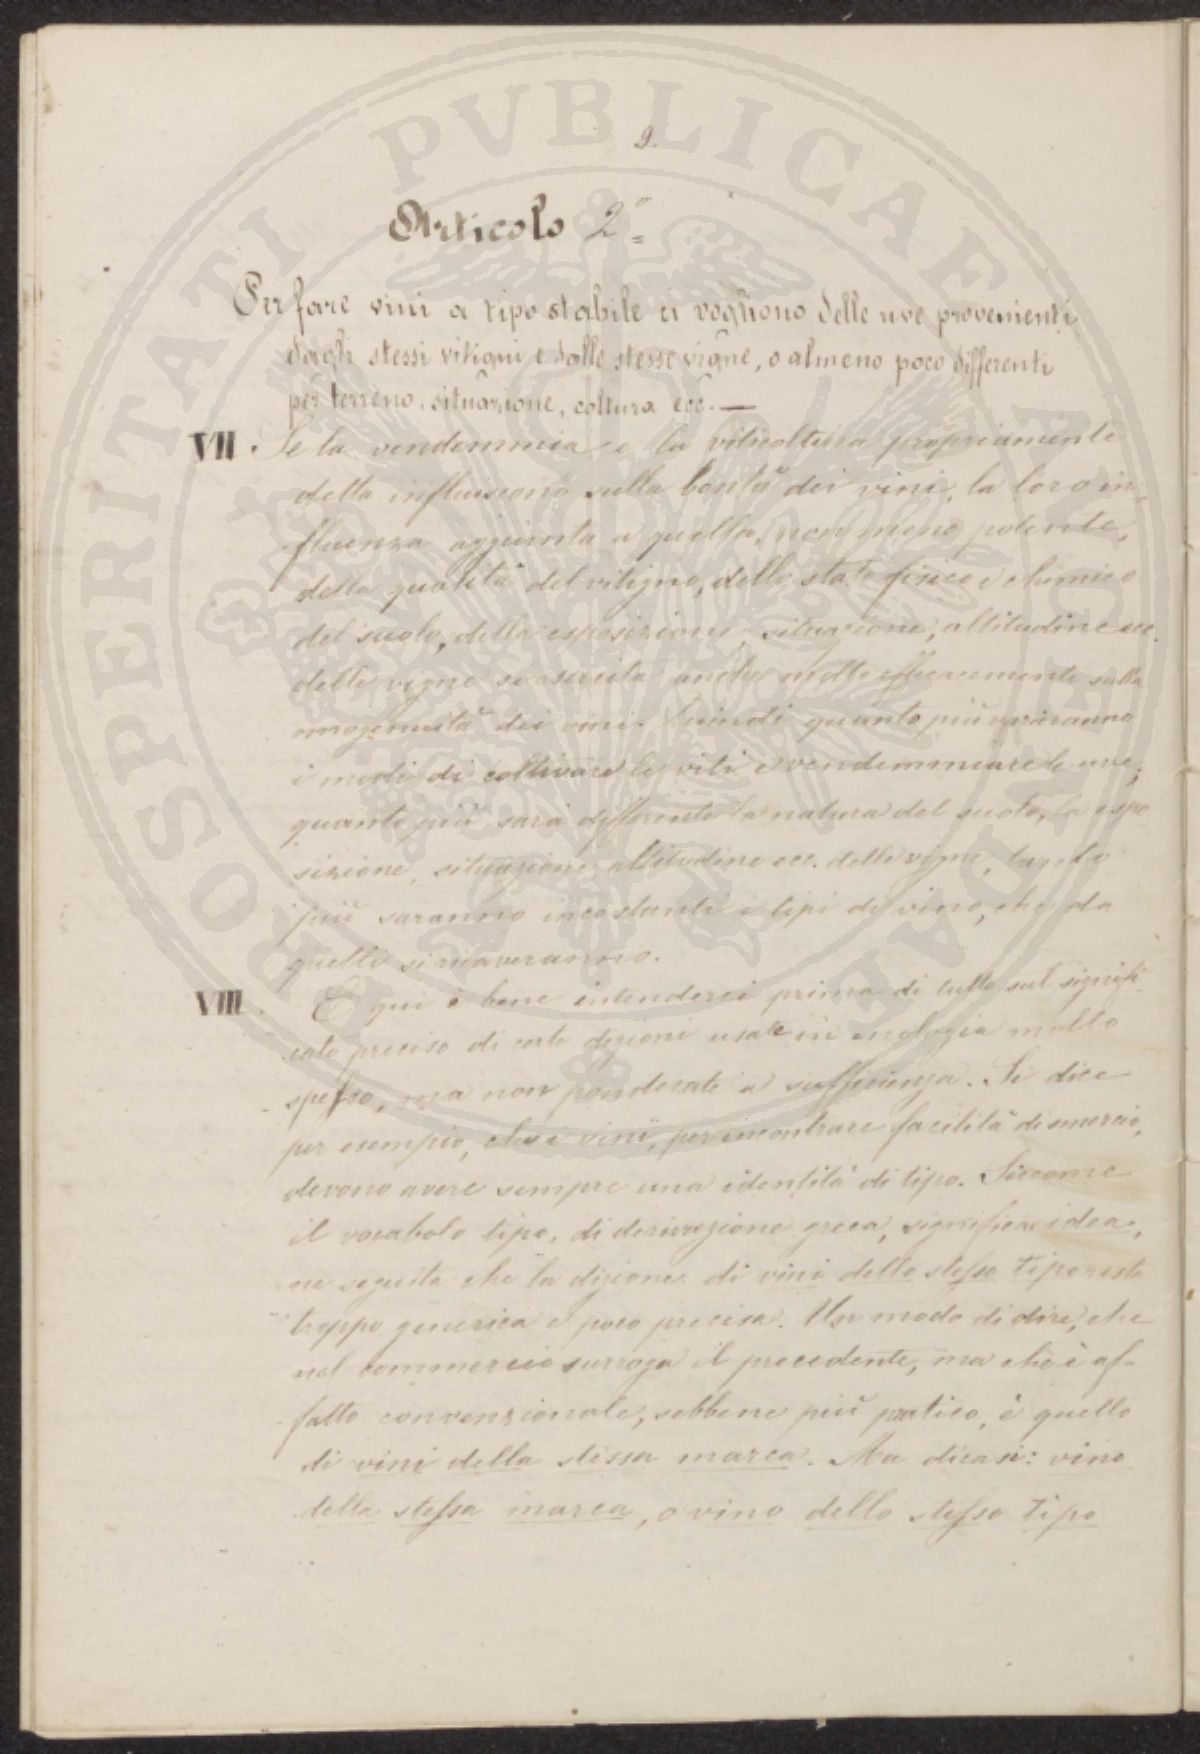 9.
Articolo 2°
Per fare vini a tipo stabile ci vogliono delle uve provenienti
dagli stessi vitigni e dalle stesse vigne, o almeno poco differenti
per terreno, situazione, coltura ecc. —
VII. Se la vendemmia e la viticoltura propriamente
detta influiscono sulla bontà dei vini, la loro in-
fluenza aggiunta a quella, non meno potente,
della qualità del vitigno, dello stato fisico e chimico
del suolo, della esposizione, situazione, altitudine ecc.
delle vigne si esercita anche molto efficacemente sulla
omogeneità dei vini. Quindi quanto più varieranno
i modi di coltivare le viti e vendemmiare le uve;
quanto più sarà differente la natura del suolo, la espo
sizione, situazione, altitudine ecc. delle vigne, tanto
più saranno incostanti i tipi di vino, che da
quelle si ricaveranno.
VIII. E qui è bene intenderci prima di tutto sul signifi
cato preciso di certe dizioni usate in enologia molto
spesso, ma non ponderate a sufficienza. Si dice
per esempio, che i vini, per incontrare facilità di smercio,
devono avere sempre una identità di tipo. Siccome
il vocabolo tipo, di derivazione greca, significa idea,
ne seguita che la dizione di vini dello stesso tipo resta
troppo generica e poco precisa. Un modo di dire, che
nel commercio surroga il precedente, ma che è af-
fatto convenzionale, sebbene più pratico, è quello
di vini della stessa marca. Ma dicasi: vino
della stessa marca, o vino dello stesso tipo
PROSPERITATI PVBLICAE AVGENDAE